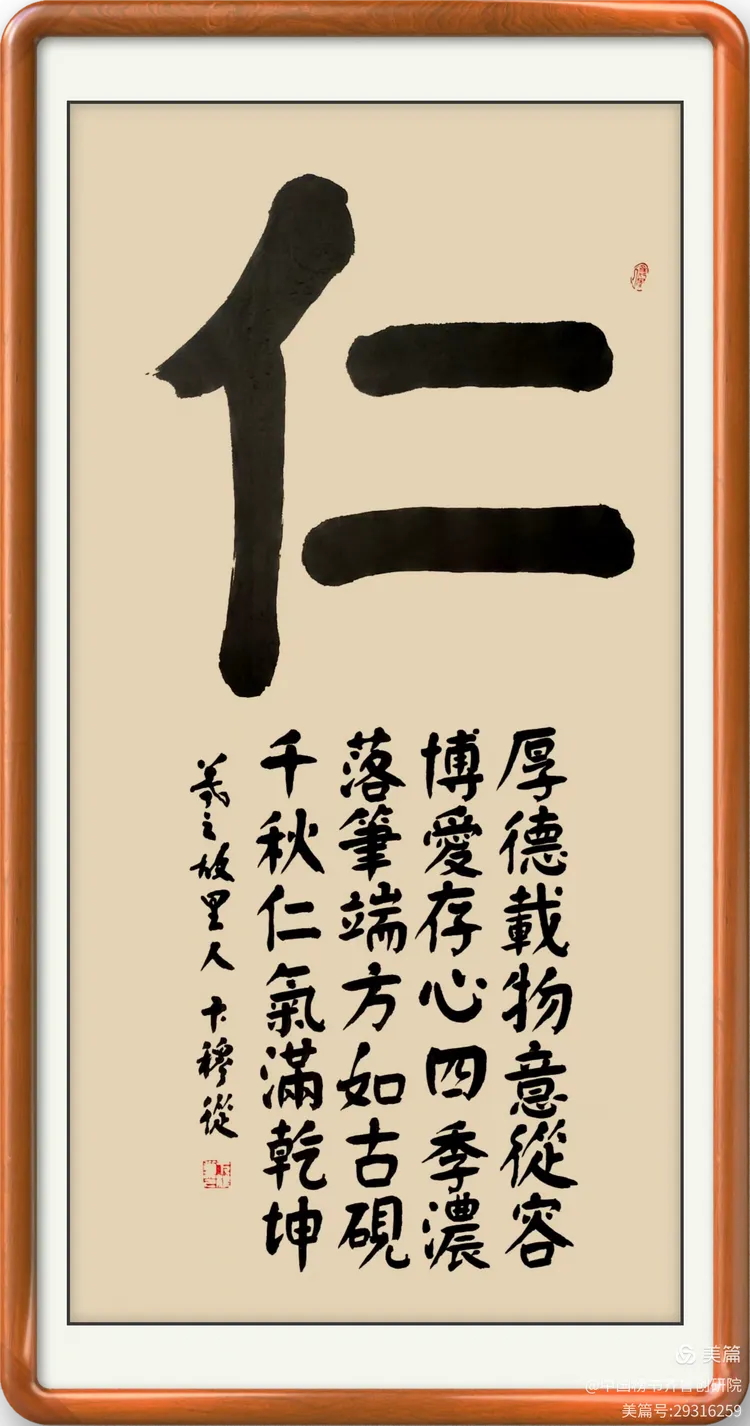 仁
厚德載物意從容
博愛存心四季濃
落筆端方如古硯
千秋仁氣滿乾坤
羲之故里人 卞穆從
美篇
@中国榜书齐鲁创研院
美篇号:29316259